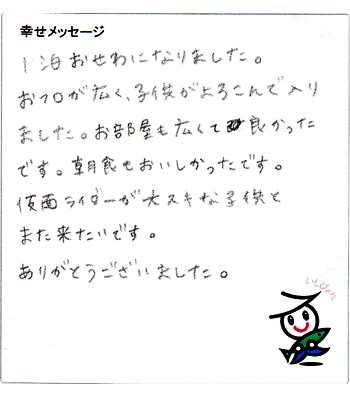 幸せメッセージ
1海おせわになりました。
おフロが広く、子供がよろこんで入り
ました。お部屋も広くて良かった
です。朝食もおいしかったです。
仮面ライダーが大スキな子供と
また来たいです。
ありがとうございました。